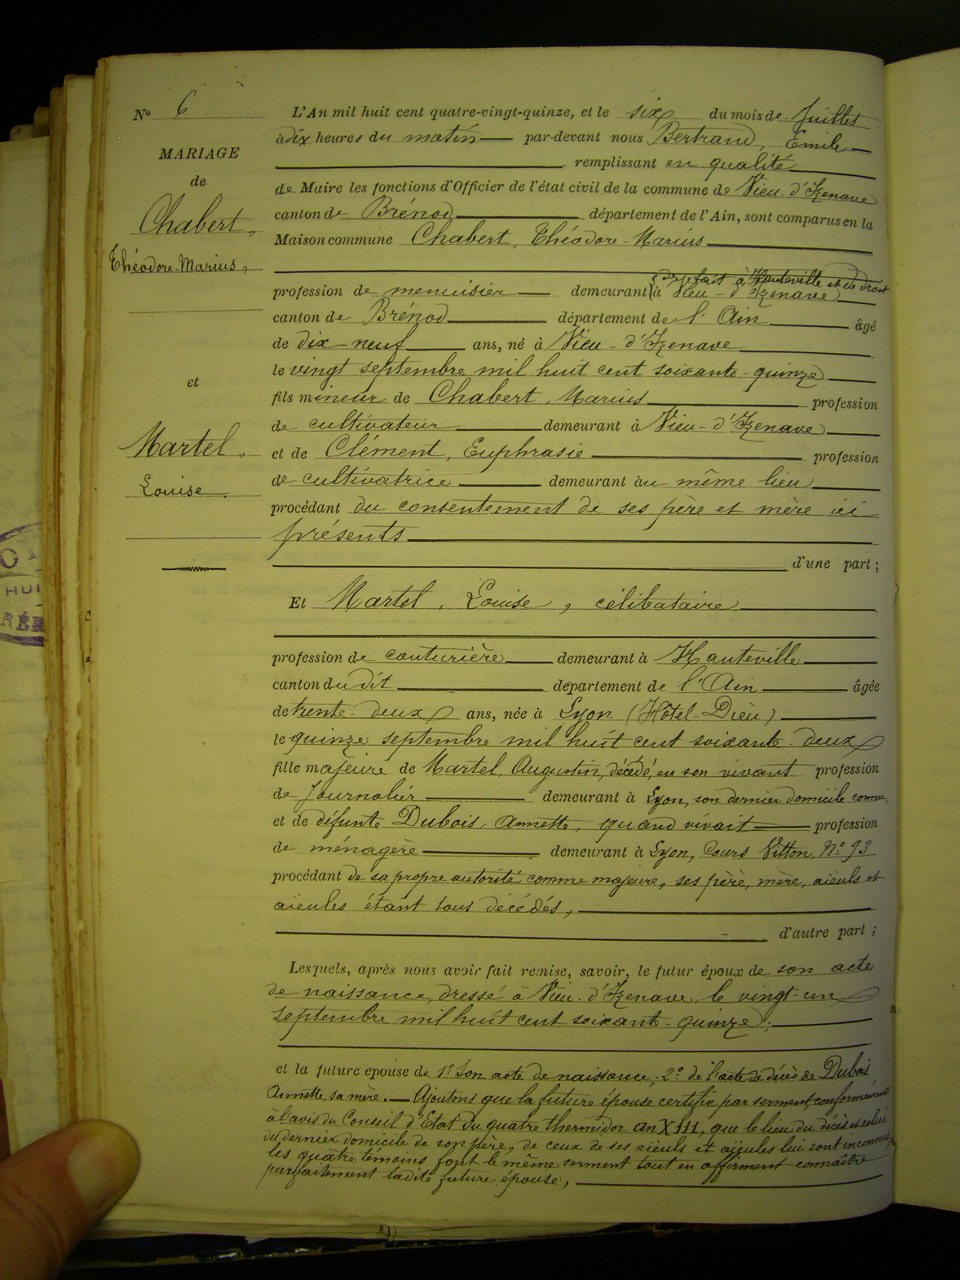 N° 6
MARIAGE
de
Chabert,
Théodore-Marius,
et
Martel,
Louise.
L'An mil huit cent quatre-vingt-quinze, et le six du mois de Juillet
à dix heures du matin par-devant nous Bertrand, Emile
remplissant en qualité
de Maire les fonctions d'Officier de l'état civil de la commune de Vieu-d'Izenave
canton de Brénod département de l'Ain, sont comparus en la
Maison commune Chabert, Théodore-Marius
de fait à Hauteville et de droit
profession de menuisier demeurant à Vieu-d'Izenave
canton de Brénod département de l'Ain âgé
de dix-neuf ans, né à Vieu-d'Izenave
le vingt septembre mil huit cent soixante-quinze
fils mineur de Chabert, Marius profession
de cultivateur demeurant à Vieu-d'Izenave
et de Clément, Euphrasie profession
de cultivatrice demeurant au même lieu
procédant du consentement de ses père et mère ici
présents
d'une part;
Et Martel, Louise, célibataire
profession de couturière demeurant à Hauteville
canton du dit département de l'Ain âgée
de trente-deux ans, née à Lyon (Hôtel-Dieu)
le quinze septembre mil huit cent soixante-deux
fille majeure de Martel, Augustin, décédé, en son vivant profession
de Journalier demeurant à Lyon, son dernier domicile connu,
et de défunte Dubois, Annette, quand vivait profession
de ménagère demeurant à Lyon, Cours Vitton, N° 93
procédant de sa propre autorité comme majeure, ses père, mère, aieuls et
aieules étant tous décédés,
d'autre part;
Lesquels, après nous avoir fait remise, savoir, le futur époux de son acte
de naissance, dressé à Vieu-d'Izenave, le vingt-un
septembre mil huit cent soixante-quinze;
et la future épouse de 1° Son acte de naissance, 2° de l'acte de décès de Dubois
Annette, sa mère. — Ajoutons que la future épouse certifie par serment, conformément
à l'avis du Conseil d'Etat du quatre thermidor an XIII, que le lieu du décès et celui
du dernier domicile de son père, de ceux de ses aïeuls et aïeules lui sont inconnus,
les quatre témoins font le même serment tout en affirment connaître
parfaitement ladite future épouse,